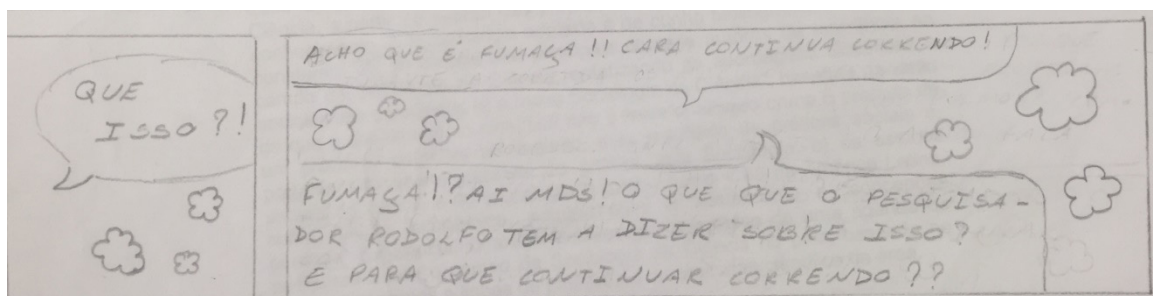 QUE
ISSO?!
ACHO QUE É FUMAÇA!! CARA CONTINUA CORRENDO!
FUMAÇA!? AI MDS! O QUE QUE O PESQUISA-
DOR RODOLFO TEM A DIZER SOBRE ISSO?
E PARA QUE CONTINUAR CORRENDO??